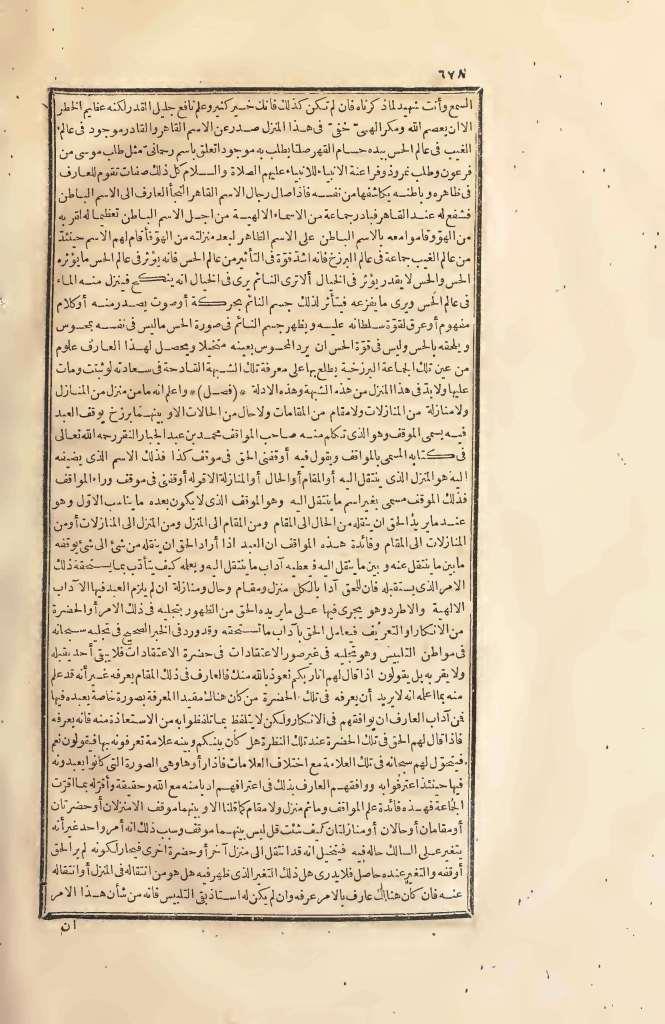 ٦٧٨
السمع وأنت شهيد لما ذكرناه فان لم تكن كذلك فانك خير كثير وعلم نافع جليل القدر لكنه عظيم الخطر
الا ان يعصم الله ومكر الهى خفى فى هذا المنزل صدر عن الاسم القاهر والقادر موجود فى عالم
الغيب فى عالم الحس بيده حسام القهر صلتا يطلب به موجودا تعلق باسم رحمانى مثل طلب موسى من
فرعون وطلب نمروذ وفراعنة الانبياء للانبياء عليهم الصلاة والسلام كل ذلك صفات تقوم للعارف
فى ظاهره وباطنه يكاشفها من نفسه فاذا صال رجال الاسم القاهر التجأ العارف الى الاسم الباطن
فشفع له عند القاهر فبادر جماعة من الاسماء الالهية من اجل الاسم الباطن تعظيما له لقربه
من الهو وقاموا معه بالاسم الباطن على الاسم الظاهر لبعد منزلته من الهو فأقام لهم الاسم حينئذ
من عالم الغيب جماعة فى عالم البرزخ فانه اشد قوة فى التأثير من عالم الحس فانه يؤثر فى عالم الحس ما يؤثره
الحس والحس لا يقدر يؤثر فى الخيال ألا ترى النائم يرى فى الخيال انه ينكح فينزل منه الماء
فى عالم الحس ويرى ما يفزعه فيتأثر لذلك جسم النائم بحركة أو صوت يصدر منه أو كلام
مفهوم أو عرق لقوة سلطانه عليه ويظهر جسم النائم فى صورة الحس ما ليس فى نفسه بمحسوس
ويلحقه بالحس وليس فى قوة الحس ان يرد المحسوس بعينه متخيلا ويحصل لهذا العارف علوم
من عين تلك الجماعة البرزخية يطلع بها على معرفة تلك الشبهة القادحة فى سعادته لو ثبت ومات
عليها ولا بد فى هذا المنزل من هذه الشبهة وهذه الادلة * (فصل) * واعلم انه ما من منزل من المنازل
ولا منازلة من المنازلات ولا مقام من المقامات ولا حال من الحالات الا وبينهما برزخ يوقف العبد
فيه يسمى الموقف وهو الذى تكلم منه صاحب المواقف محمد بن عبد الجبار النفرى رحمه الله تعالى
فى كتابه المسمى بالمواقف ويقول فيه أوقفنى الحق فى موقف كذا فذلك الاسم الذى يضيفه
اليه هو المنزل الذى ينتقل اليه أو المقام أو الحال أو المنازلة الا قوله أوقفنى فى موقف وراء المواقف
فذلك الموقف مسمى بغير اسم ما ينتقل اليه وهو الموقف الذى لا يكون بعده ما يناسب الاول وهو
عند ما يريد الحق ان ينقله من الحال الى المقام ومن المقام الى المنزل ومن المنزل الى المنازلات أو من
المنازلات الى المقام وفائدة هذه المواقف ان العبد اذا أراد الحق ان ينقله من شئ الى شئ يوقفه
ما بين ما ينتقل عنه وبين ما ينتقل اليه فيعطيه آداب ما ينتقل اليه ويعلمه كيف يتأدب بما يستحقه ذلك
الامر الذى يستقبله فان للحق آدابا لكل منزل ومقام وحال ومنازلة ان لم يلزم العبد فيها الآداب
الالهية والاطرد وهو يجرى فيها على ما يريده الحق من الظهور بتجليه فى ذلك الامر أو الحضرة
من الانكار او التعريف فيعامل الحق بآداب ما تستحقه وقد ورد فى الخبر الصحيح فى تجليه سبحانه
فى مواطن التلبيس وهو تجليه فى غير صور الاعتقادات فى حضرة الاعتقادات فلا يبقى أحد يقبله
ولا يقر به بل يقولون اذا قال لهم انا ربكم نعوذ بالله منك فالعارف فى ذلك المقام يعرفه غير أنه قد علم
منه بما اعلمه انه لا يريد أن يعرفه فى تلك الحضرة من كان هناك مقيد المعرفة بصورة خاصة يعبده فيها
فمن آداب العارف ان يوافقهم فى الانكار ولكن لا يتلفظ بما تلفظوا به من الاستعاذة منه فانه يعرفه
فاذا قال لهم الحق فى تلك الحضرة عند تلك النظرة هل كان بينكم وبينه علامة تعرفونه بها فيقولون نعم
فيتحول لهم سبحانه فى تلك العلامة مع اختلاف العلامات فاذا رأوها وهى الصورة التى كانوا يعبدونه
فيها حينئذ اعترفوا به ووافقهم العارف بذلك فى اعترافهم ادبا منه مع الله وحقيقة وأقر له بما اقرت
الجماعة فهذه فائدة علم المواقف وما ثم منزل ولا مقام كما قلنا الا وبينهما موقف الا منزلان أو حضرتان
أو مقامان أو حالان أو منازلتان كيف شئت قل ليس بينهما موقف وسبب ذلك انه أمر واحد غير أنه
يتغير على السالك حاله فيه فيتخيل انه قد انتقل الى منزل آخر أو حضرة اخرى فيحار لكونه لم ير الحق
أوقفه والتغير عنده حاصل فلا يدرى هل ذلك التغير الذى ظهر فيه هل هو من انتقاله فى المنزل أو انتقاله
عنه فان كان هنالك عارف بالامر عرفه وان لم يكن له استاذ بقى التلبيس فانه من شأن هذا الامر
ان